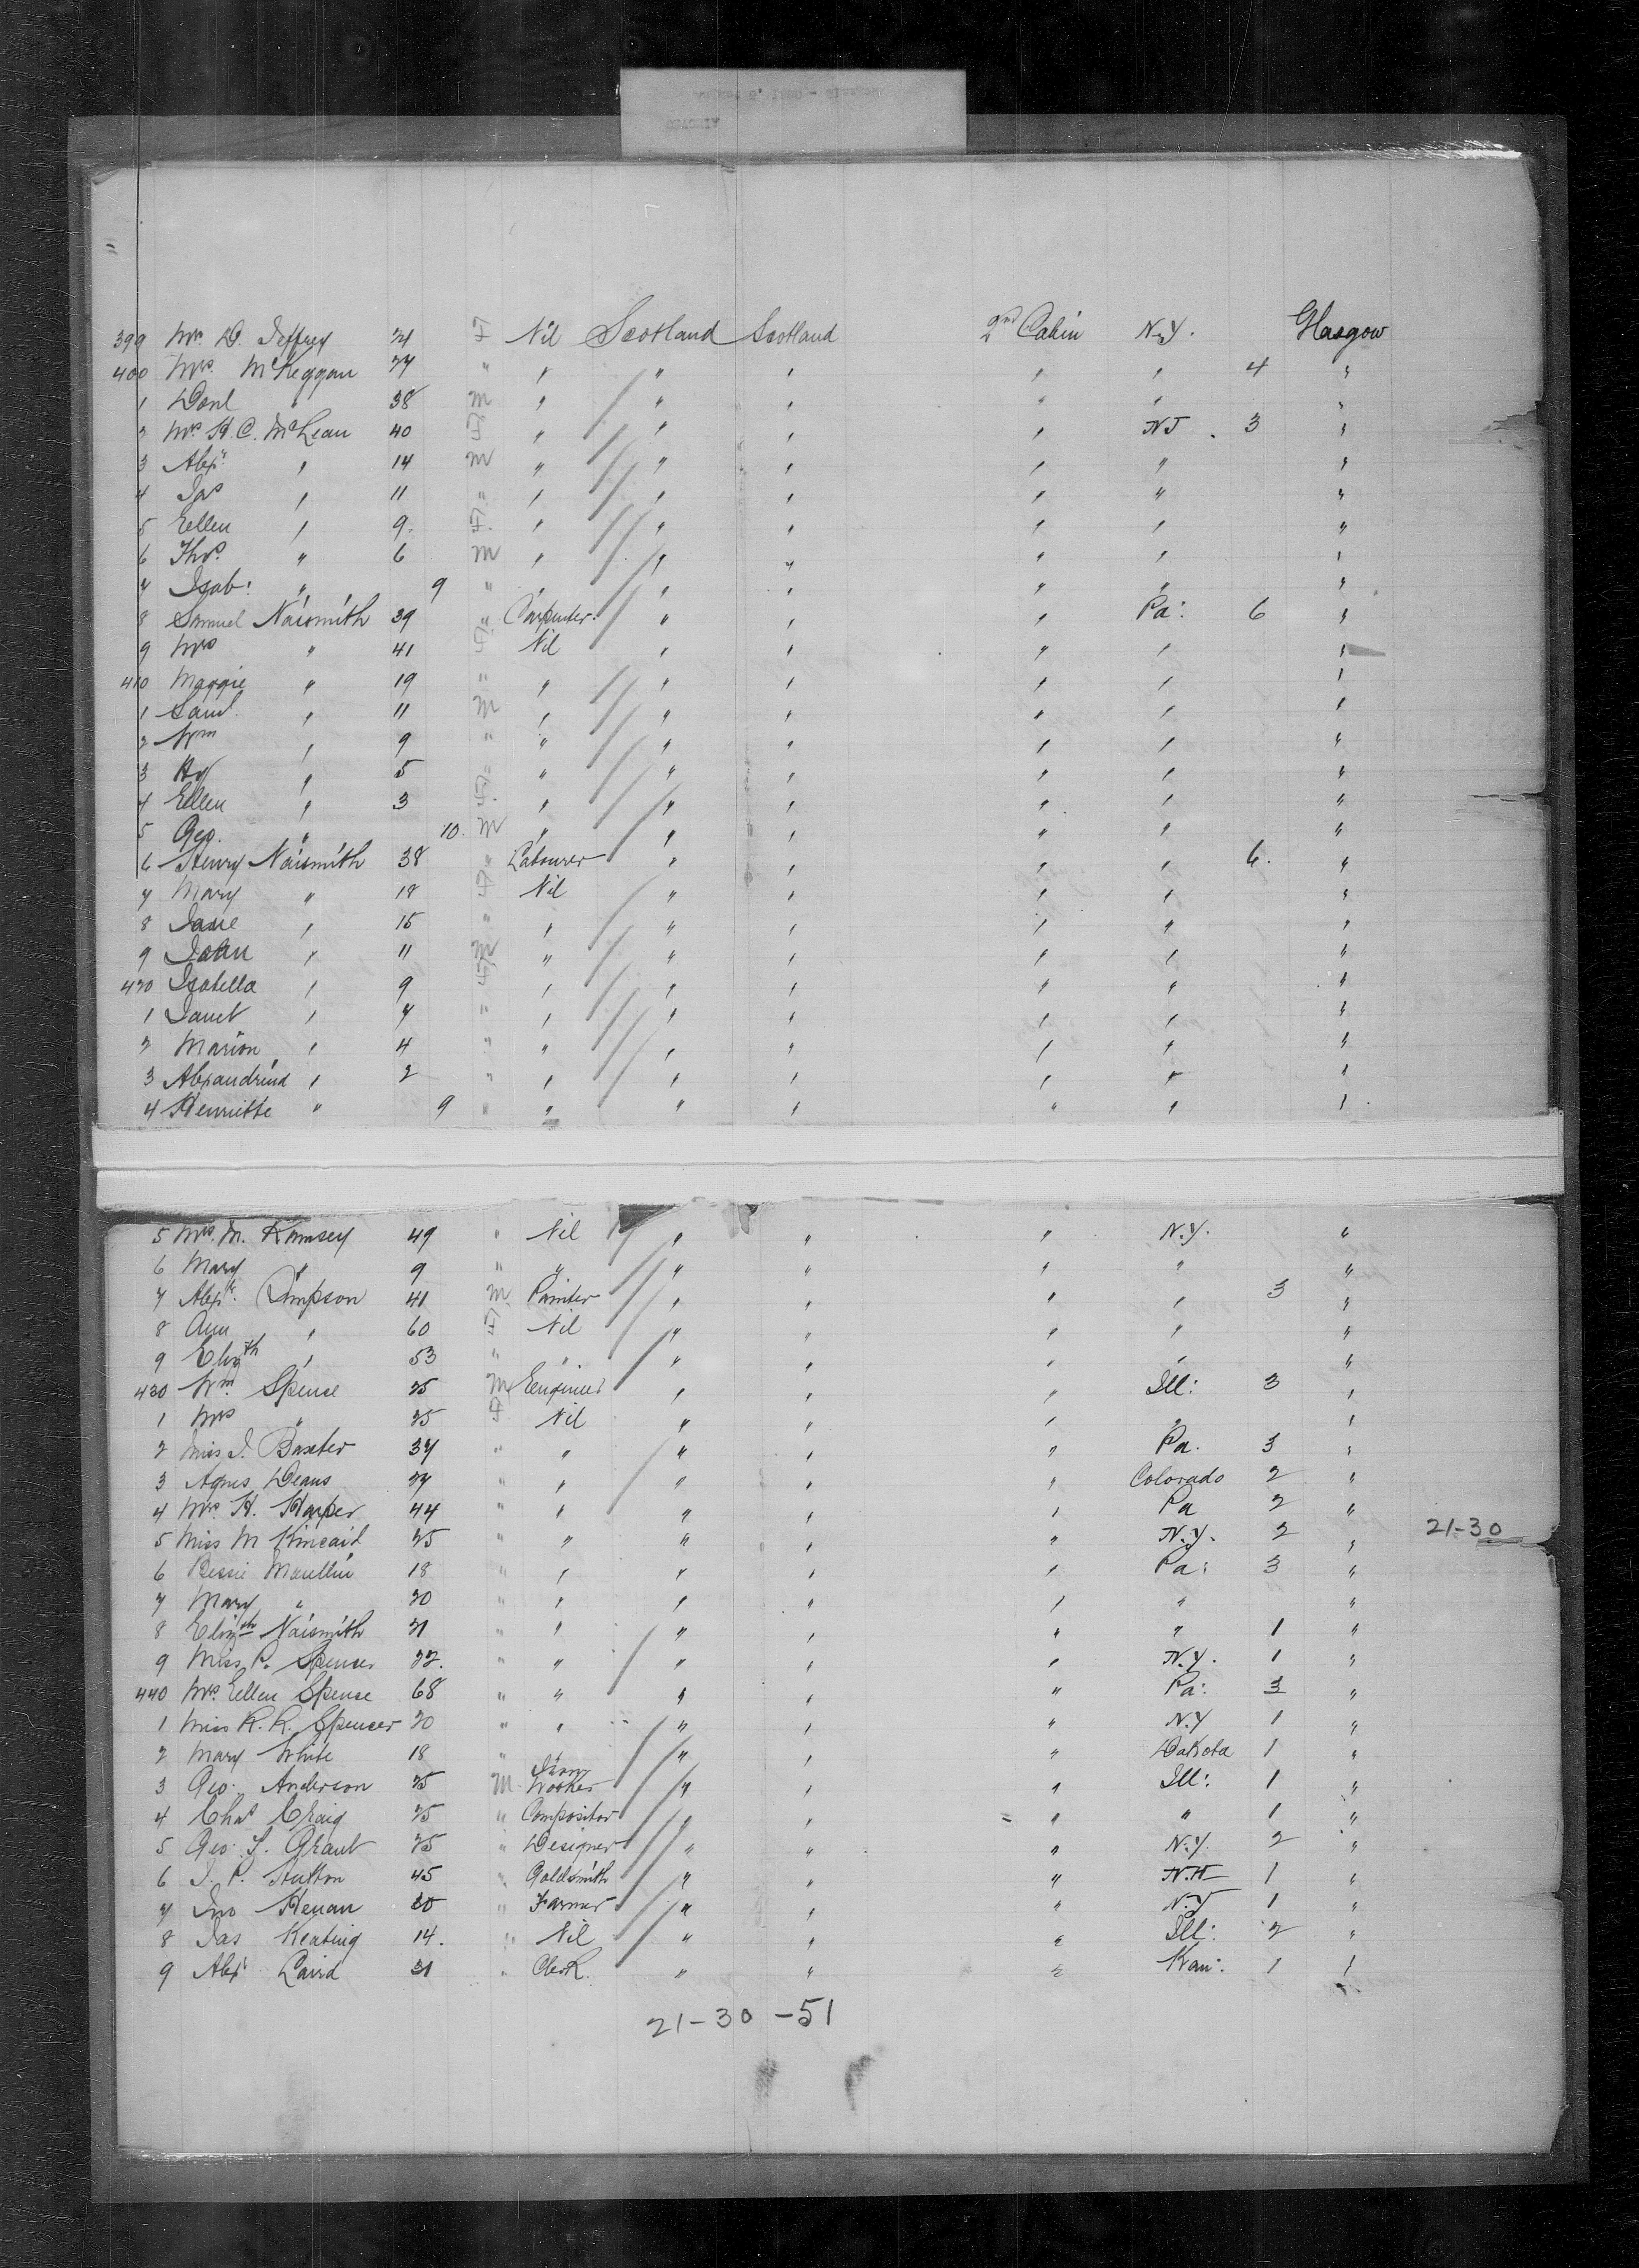 399 Mrs D. Jeffrey 21 F Nil Scotland Scotland 2nd Cabin N.Y. Glasgow
400 Mrs. McKeggan 27 " " " " " " 4 "
1 Danl " 38 M " " " " " "
2 Mrs H. C. McLean 40 F " " " " NJ. 3 "
3 Alexr " 14 M " " " " " "
4 Jas " 11 " " " " " " "
5 Ellen " 9 F. " " " " " "
6 Thos " 6 M " " " " " "
7 Isab: " 9 " " " " " " "
8 Samuel Naismith 39 " Carpenter " " " Pa: 6 "
9 Mrs " 41 F Nil " " " " "
410 Maggie " 19 " " " " " " "
1 Saml. " 11 M " " " " " "
2 Wm " 9 " " " " " " "
3 Hy " 5 " " " " " " "
4 Ellen " 3 F. " " " " " "
5 Geo. " 10. M " " " " " "
6 Henry Naismith 38 " Labourer " " " " 6. "
7 Mary " 18 F Nil " " " " "
8 Jane " 15 " " " " " " "
9 John " 11 M " " " " " "
420 Isabella " 9 F " " " " " "
1 Janet " 7 " " " " " " "
2 Marion " 4 " " " " " " "
3 Alexandrina " 2 " " " " " " "
4 Henriette " 9 " " " " " " "
5 Mrs. M. Ramsey 49 " Nil " " " N.Y. "
6 Mary " 9 " " " " " " "
7 Alexr. Simpson 41 M. Painter " " " " 3 "
8 Ann " 60 F Nil " " " " "
9 Elizth " 53 " " " " " " "
430 Wm Spense 25 M Engineer " " " Ill: 3 "
1 Mrs " 25 F. Nil " " " " "
2 Miss J. Baxter 37 " " " " " Pa. 3 "
3 Agnes Deans 27 " " " " " Colorado 2 "
4 Mrs H. Harper 44 " " " " " Pa 2 "
5 Miss M Kincaid 25 " " " " " N.Y. 2 " 21-30
6 Bessie Maullin 18 " " " " " Pa: 3 "
7 Mary " 20 " " " " " " "
8 Elizth Naismith 21 " " " " " " 1 "
9 Miss P. Spenser 22. " " " " " N.Y. 1 "
440 Mrs Ellen Spense 68 " " " " " Pa: 3 "
1 Miss R. R. Spencer 20 " " " " " N.Y 1 "
2 Mary White 18 " " " " " Dakota 1 "
3 Geo. Anderson 25 M. Iron Worker " " " Ill: 1 "
4 Chas Craig 25 " Compositor " " " " 1 "
5 Geo. S. Grant 25 " Designer " " " N.Y. 2 "
6 J. P. Hutton 45 " Goldsmith " " " N.H 1 "
7 Jno Henan 20 " Farmer " " " N.Y 1 "
8 Jas Keating 14. " Nil " " " Ill: 2 "
9 Alexr Laird 31 " Clerk. " " " Kan: 1 "
21-30-51